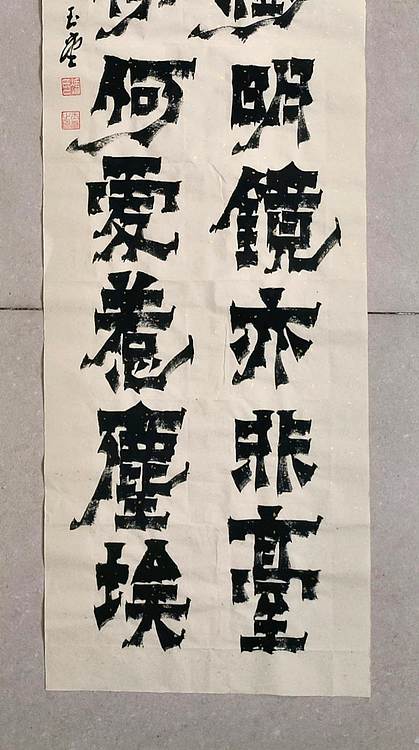 樹明鏡亦非臺
何處惹塵埃
玉